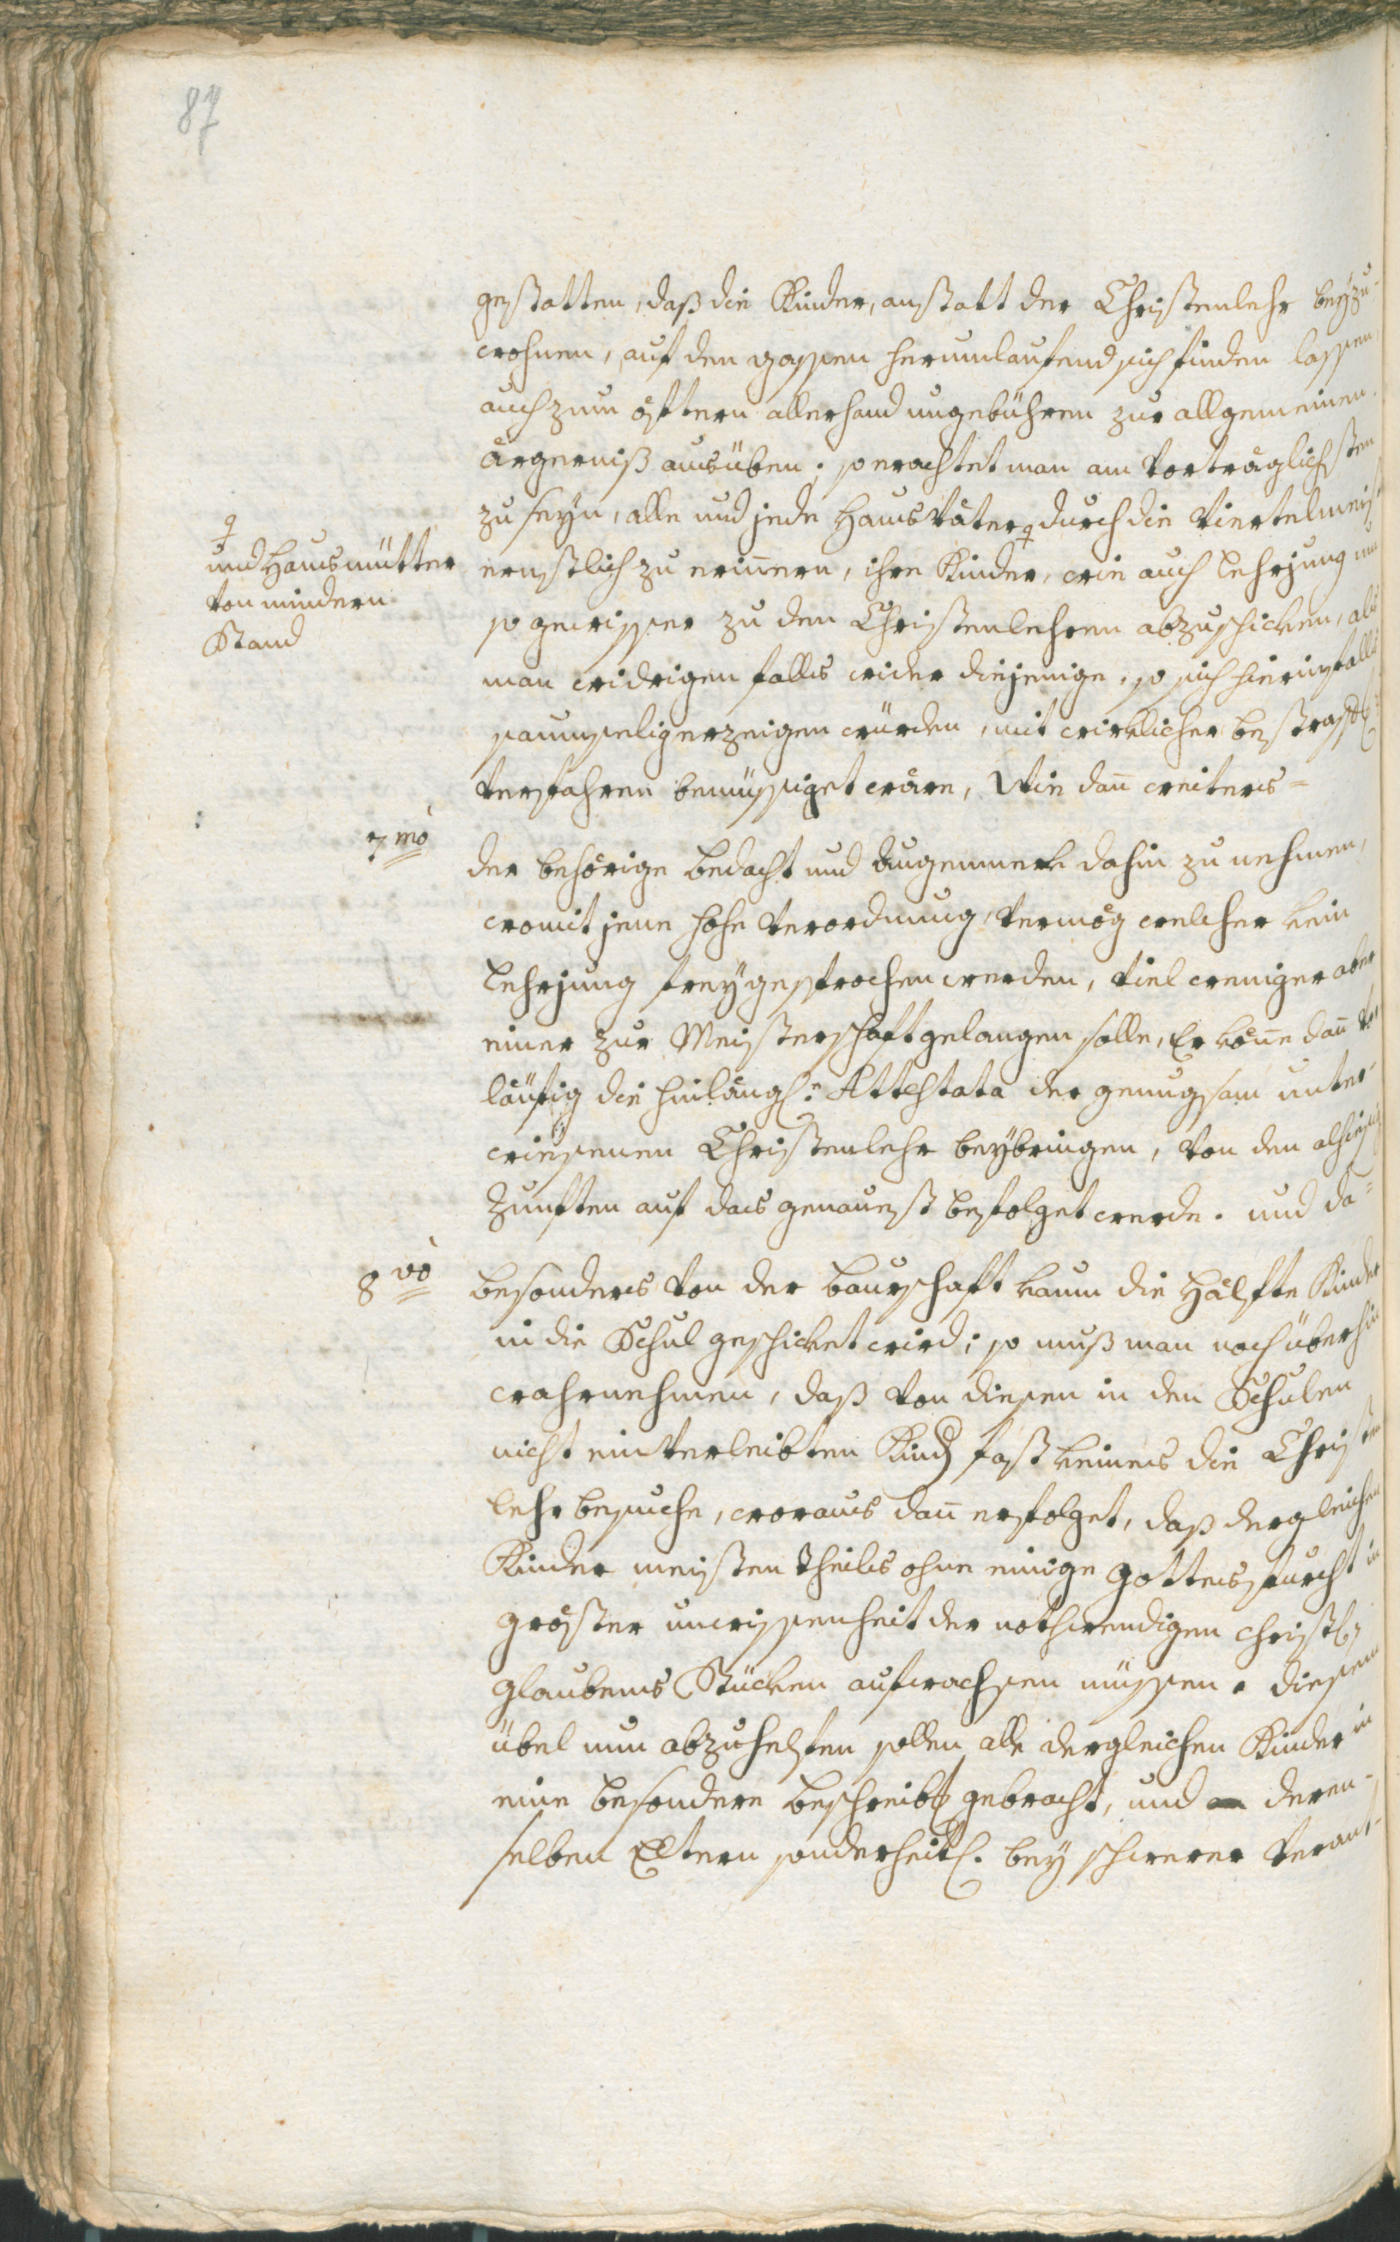 87
gestatten, daß die Kinder, anstatt der Christenlehr beyzu-
wohnen, auf den gassen herumlaufend sich finden lassen,
auch zum öftern allerhand ungebühren zur allgemeinen
ärgerniß ausüben; so erachtet man am Vorträglichsten
zu seyn, alle und jede Hausväter durch die Viertelmeist
und Hausmütter
von mindern
Stand
ernstlich zu erinnern, ihre Kinder, wie auch Lehrjung um
so gewisser zu den Christenlehren abzuschicken, als
man widrigen falls wider diejenige, so sich hierinfalls
saumselig erzeigen würden, mit wirklicher bestraffg
Verfahren bemüssiget wäre, Wie dan weiters=
7mo
der behörige bedacht und Augenmerk dahin zu nehmen,
womit jene hohe Verordnung, Vermög welcher kein
Lehrjung freygesprochen werden, Viel weniger aber
einer zur Meisterschaft gelangen solle, Er köne dan Vor
läufig die hinlängl: Attestata der genugsam unter-
wiesenen Christenlehr beybringen, Von den alhiesig
Zunften auf das genauest befolget werde. und da=
8vo
besonders Von der baurschaft kaum die Hälfte Kinder
in die Schul geschicket wird; so muß man noch überhin
wahrnehmen, daß Von diesen in den Schulen
nicht einverleibten Kindern fast keines die Christen
lehr besuche, woraus dan erfolget, daß dergleichen
Kinder meisten theils ohne einige Gottesfurcht in
gröster unwissenheit der nothwendigen christl:
glaubens Stücken aufwachsen müssen. diesem
übel nun abzuhelfen sollen alle dergleichen Kinder in
eine besondere beschreibg gebracht, und deren-
selben Eltern sonderheitl. bey schwerer Verant-